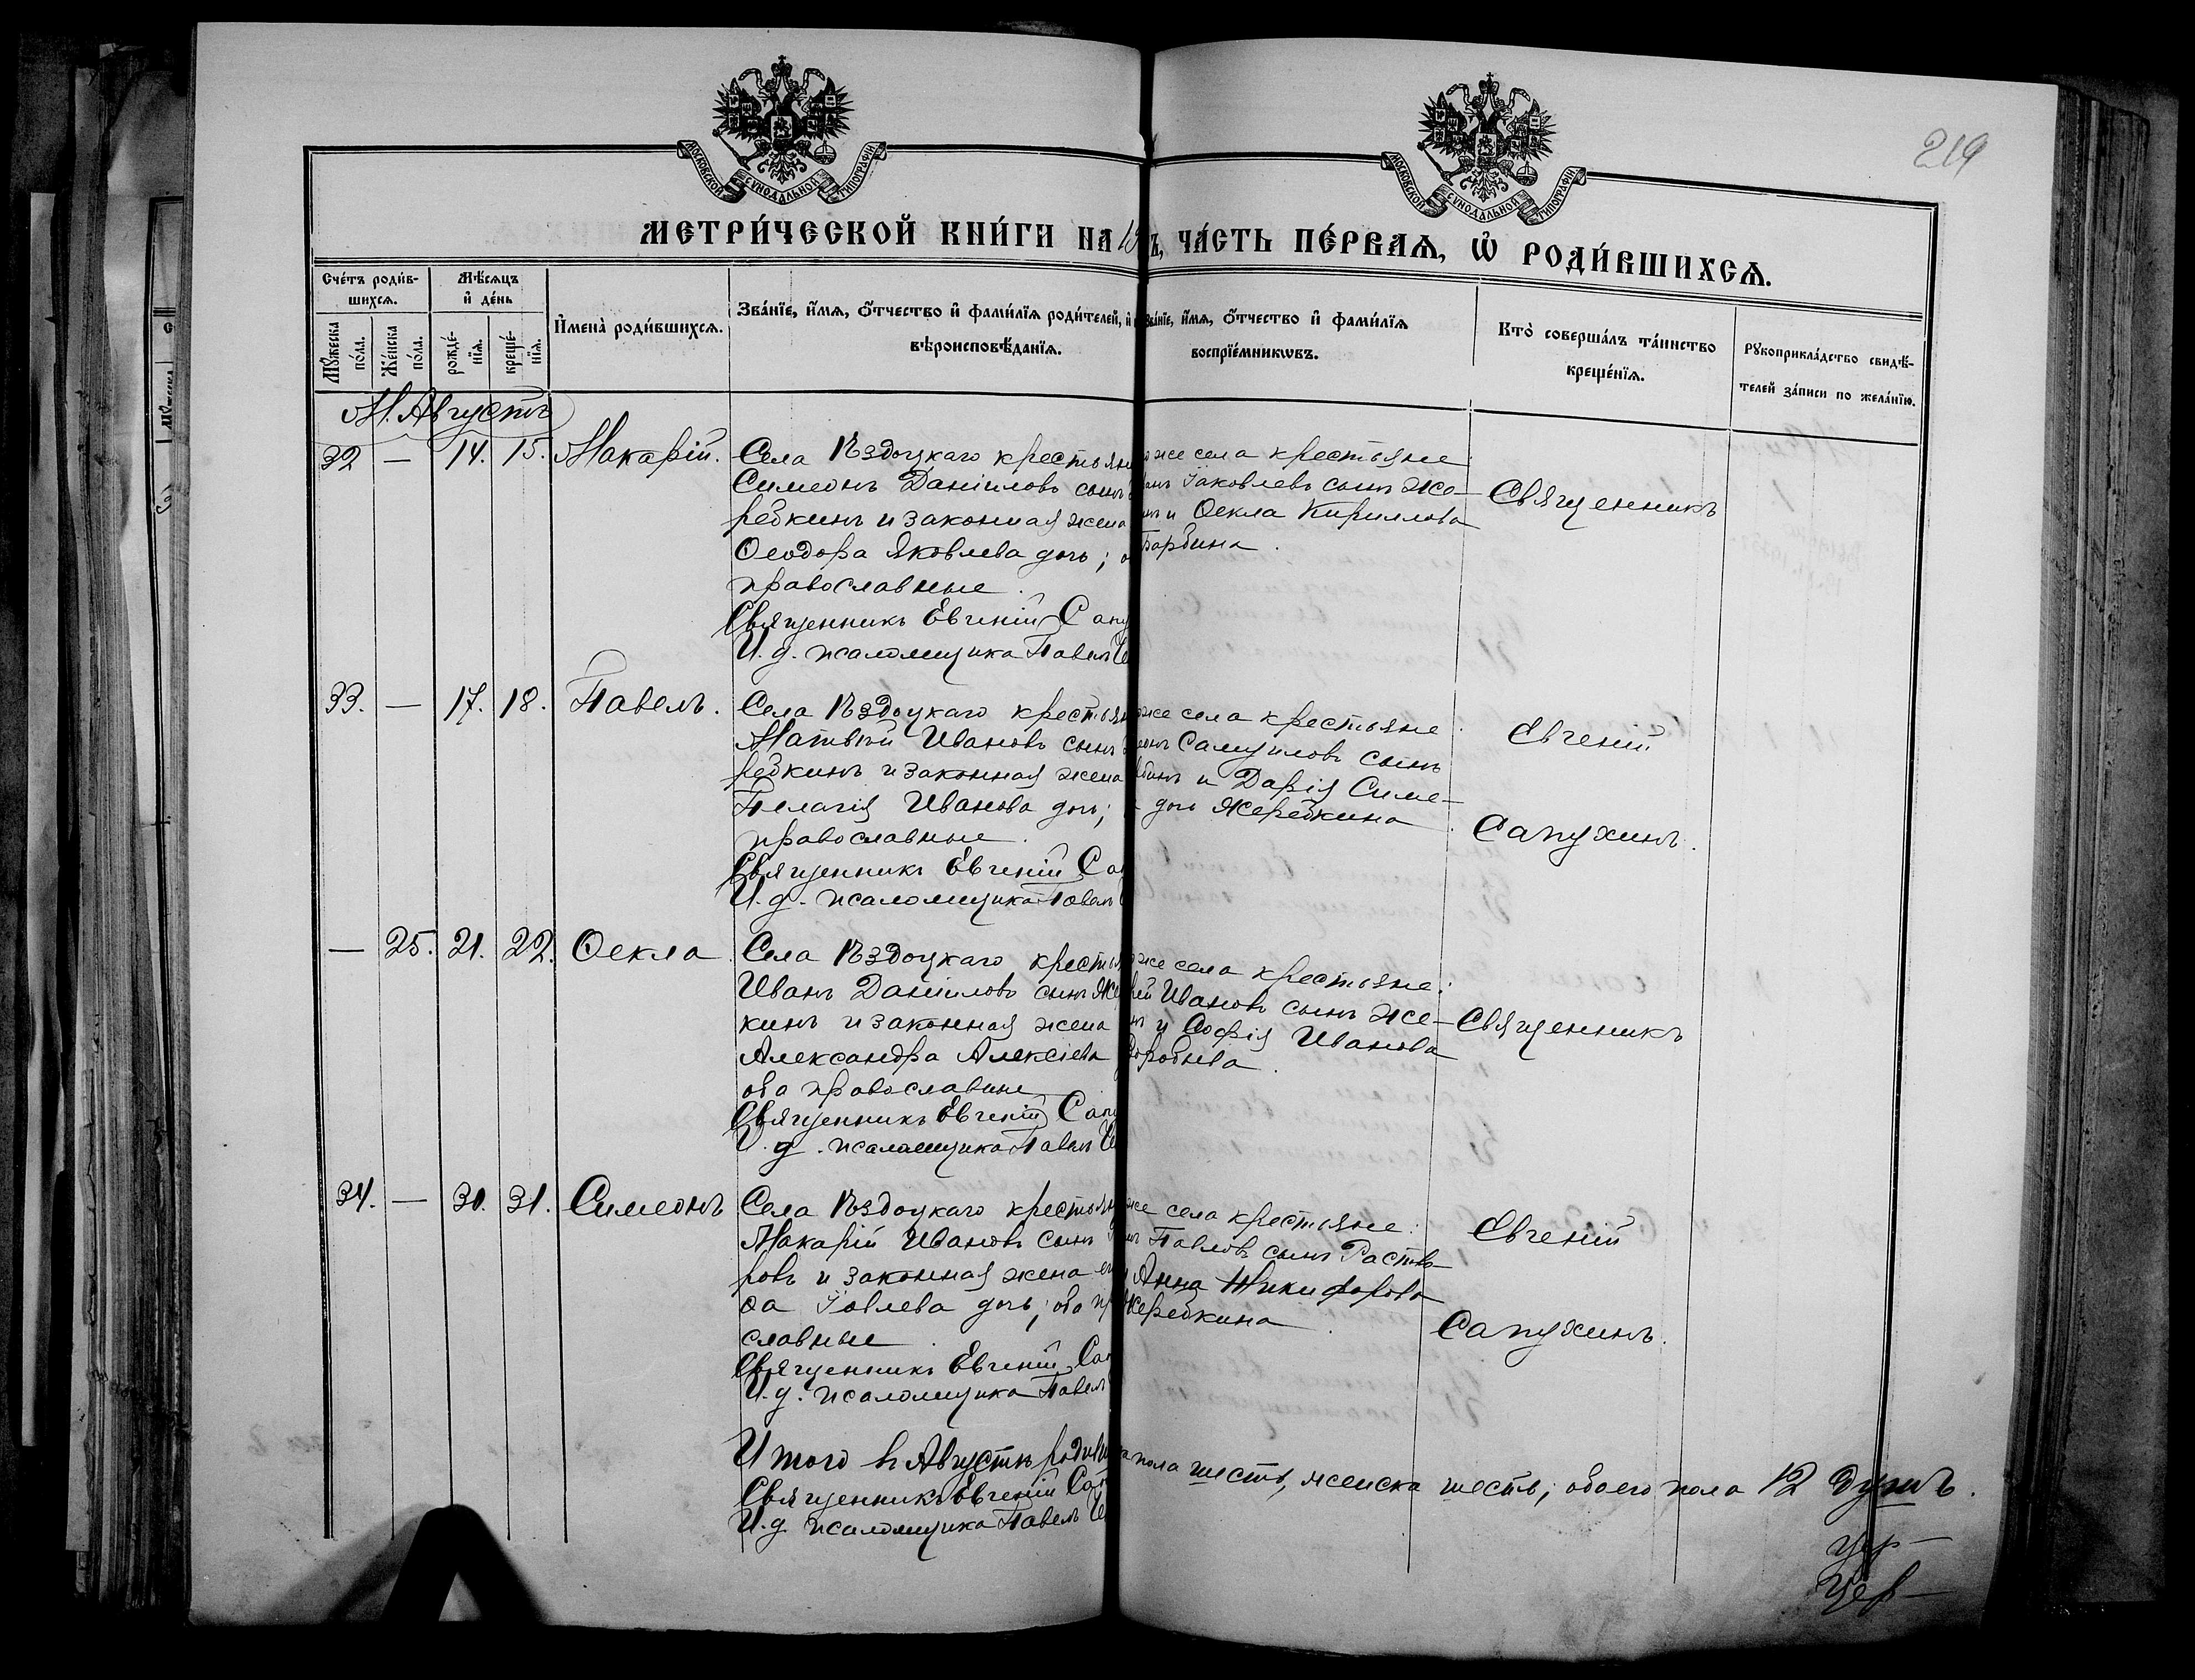 219
МОСКОВСКОЙ СУНОДАЛЬНОЙ ТИПОГРАФІИ
МОСКОВСКОЙ СУНОДАЛЬНОЙ ТИПОГРАФІИ
МЕТРИ́ЧЕСКОЙ КНИ́ГИ НА 19
Ъ, ЧА́СТЬ ПЕ́РВАѦ, Ѡ РОДИ́ВШИХСѦ.
Сче́тъ роди́в-
шихсѧ.
Мꙋ́жеска
по́ла.
Же́нска
по́ла.
Мѣ́сѧцъ
и҆ де́нь
рожде́-
нїѧ.
креще́-
нїѧ.
И҆мена̀ роди́вшихсѧ.
Зва́нїе, и҆́мѧ, ѻ҆́тчество и҆ фами́лїѧ роди́телей, и҆
вѣроисповѣ́данїѧ.
Зва́нїе, и҆́мѧ, ѻ҆́тчество и҆ фами́лїѧ
воспрїе́мникѡвъ.
Кто̀ соверша́лъ та́инство
креще́нїѧ.
Рꙋкоприкла́дство свидѣ́-
телей за́писи по жела́нїю.
М. Августъ
32 — 14. 15. Макарій.
Села Ѣздоцкаго крестьян
Симеонъ Даніиловъ сынъ
ребкинъ и законная жена
Ѳеодора Яковлева дочь; о
православные.
Священникъ Евгеній Сапу
И. д. псаломщика Павелъ
же села крестьяне
Іаковлевъ сынъ Же-
и Ѳекла Кириллова
Барбина.
Священникъ
33. — 17. 18. Павелъ.
Села Ѣздоцкаго крестьян
Матвѣй Ивановъ сынъ
ребкинъ и законная жена
Пелагія Иванова дочь;
православные.
Священникъ Евгеній Сап
И. д. псаломщика Павелъ
же села крестьяне:
Самуиловъ сынъ
и Дарія Симе-
дочь Жеребкина.
Евгеній
Сапухинъ.
— 25. 21. 22. Ѳекла.
Села Ѣздоцкаго крестья
Иванъ Даніиловъ сынъ Же
кинъ и законная жена
Александра Алексіева
оба православные
Священникъ Евгеній Сапу
И. д. псаломщика Павелъ
же села крестьяне:
Ивановъ сынъ Же-
и Софія Иванова
Воробьева.
Священникъ
34. — 30. 31. Симеонъ
Села Ѣздоцкаго крестьян
Макарій Ивановъ сынъ
ровъ и законная жена ег
ѳа Іовлева дочь; оба пр
славные.
Священникъ Евгеній Сап
И. д. псаломщика Павелъ
же села крестьяне:
Павловъ сынъ Раство-
Анна Никифорова
Жеребкина.
Евгеній
Сапухинъ.
Итого въ Августѣ родив
пола шесть, женска шесть; обоего пола 12 душъ.
Священникъ Евгеній Сап
И. д. псаломщика Павелъ